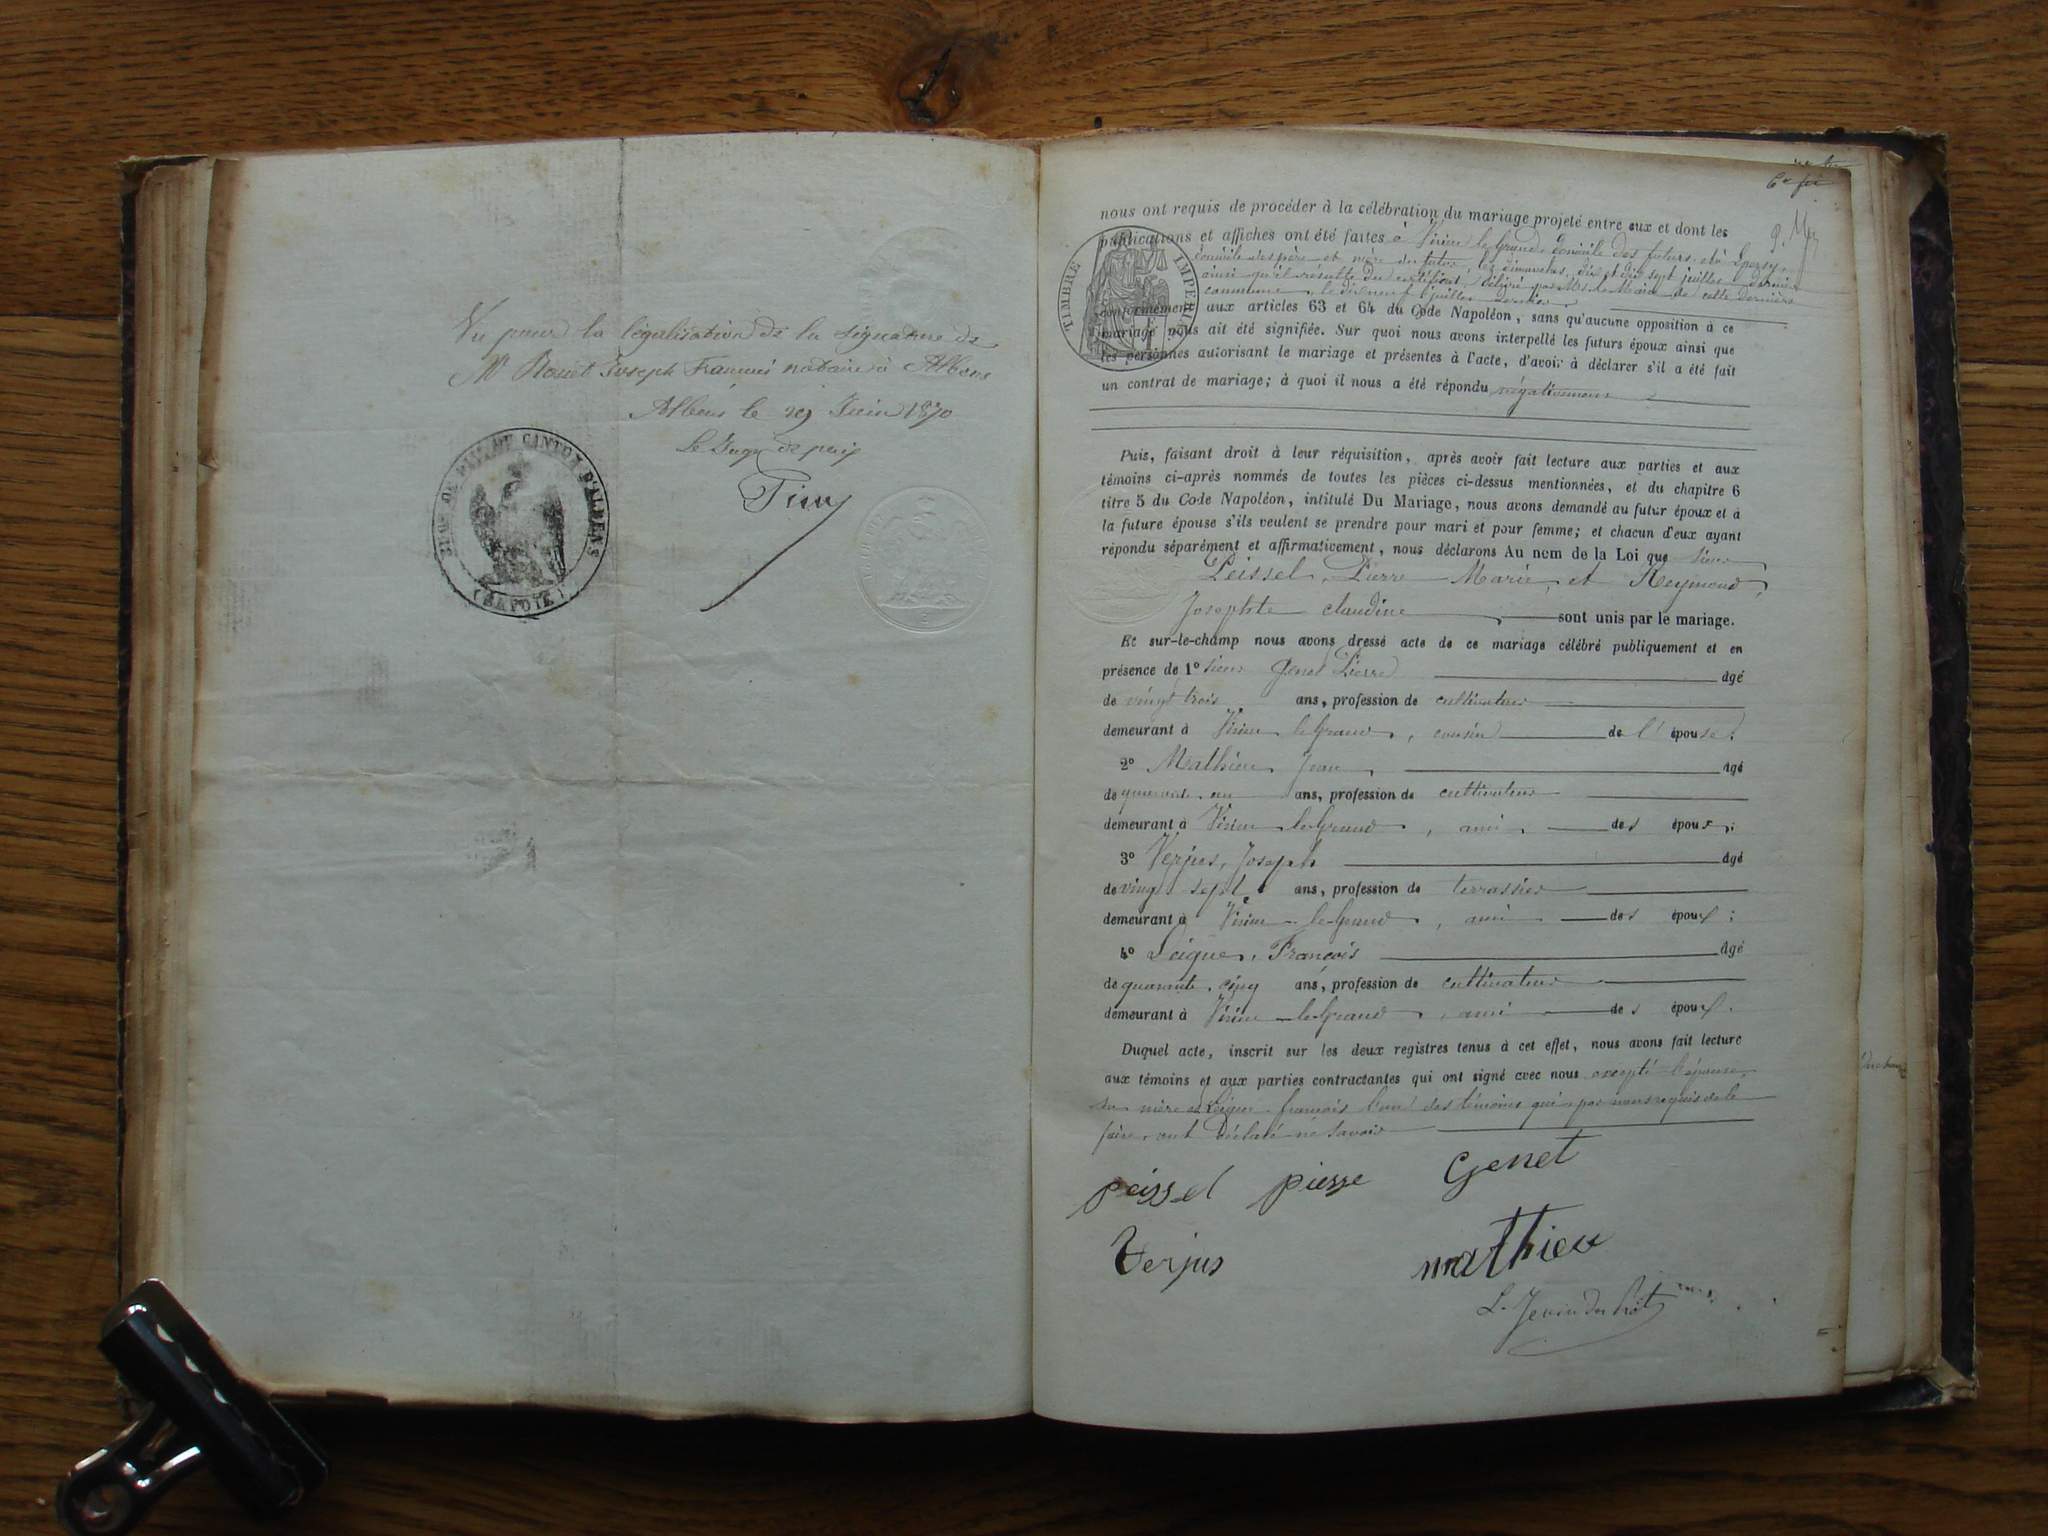 Vu pour la légalisation de la signature de
Mr Joseph François notaire à Albens
Albens le 29 Juin 1870
Le Juge de paix
DE PAIX DU CANTON D'ALBENS
(SAVOIE)
nous ont requis de procéder à la célébration du mariage projeté entre eux et dont les
publications et affiches ont été faites à Virieu le Grand, domicile des futurs, et à
domicile des père et mère du futur, les dimanches, dix et dix sept juillet dernier
ainsi qu'il résulte du certificat, délivré par Mr le Maire de cette dernière
commune, le dix neuf juillet dernier
TIMBRE IMPERIAL
conformément aux articles 63 et 64 du Code Napoléon, sans qu'aucune opposition à ce
mariage nous ait été signifiée. Sur quoi nous avons interpellé les futurs époux ainsi que
les personnes autorisant le mariage et présentes à l'acte, d'avoir à déclarer s'il a été fait
un contrat de mariage; à quoi il nous a été répondu négativement
Puis, faisant droit à leur réquisition, après avoir fait lecture aux parties et aux
témoins ci-après nommés de toutes les pièces ci-dessus mentionnées, et du chapitre 6
titre 5 du Code Napoléon, intitulé Du Mariage, nous avons demandé au futur époux et à
la future épouse s'ils veulent se prendre pour mari et pour femme; et chacun d'eux ayant
répondu séparément et affirmativement, nous déclarons Au nom de la Loi que sieur
Peissel, Pierre Marie, et Reymond,
Josephte claudine sont unis par le mariage.
Et sur-le-champ nous avons dressé acte de ce mariage célébré publiquement et en
présence de 1° sieur Genet Pierre âgé
de vingt trois ans, profession de cultivateur
demeurant à Virieu le Grand, cousin de l'épouse.
2° Mathieu Jean, âgé
de quarante un ans, profession de cultivateur
demeurant à Virieu le Grand, ami des époux;
3° Verjus, Joseph âgé
de vingt sept ans, profession de terrassier
demeurant à Virieu-le-Grand, ami des époux;
4° Leigue, François âgé
de quarante cinq ans, profession de cultivateur
demeurant à Virieu-le-Grand, ami des époux.
Duquel acte, inscrit sur les deux registres tenus à cet effet, nous avons fait lecture
aux témoins et aux parties contractantes qui ont signé avec nous excepté l'épouse,
sa mère et Leigue françois l'un des témoins qui, par nous requis de le
faire, ont déclaré ne savoir
peissel pierre Genet
Verjus mathieu